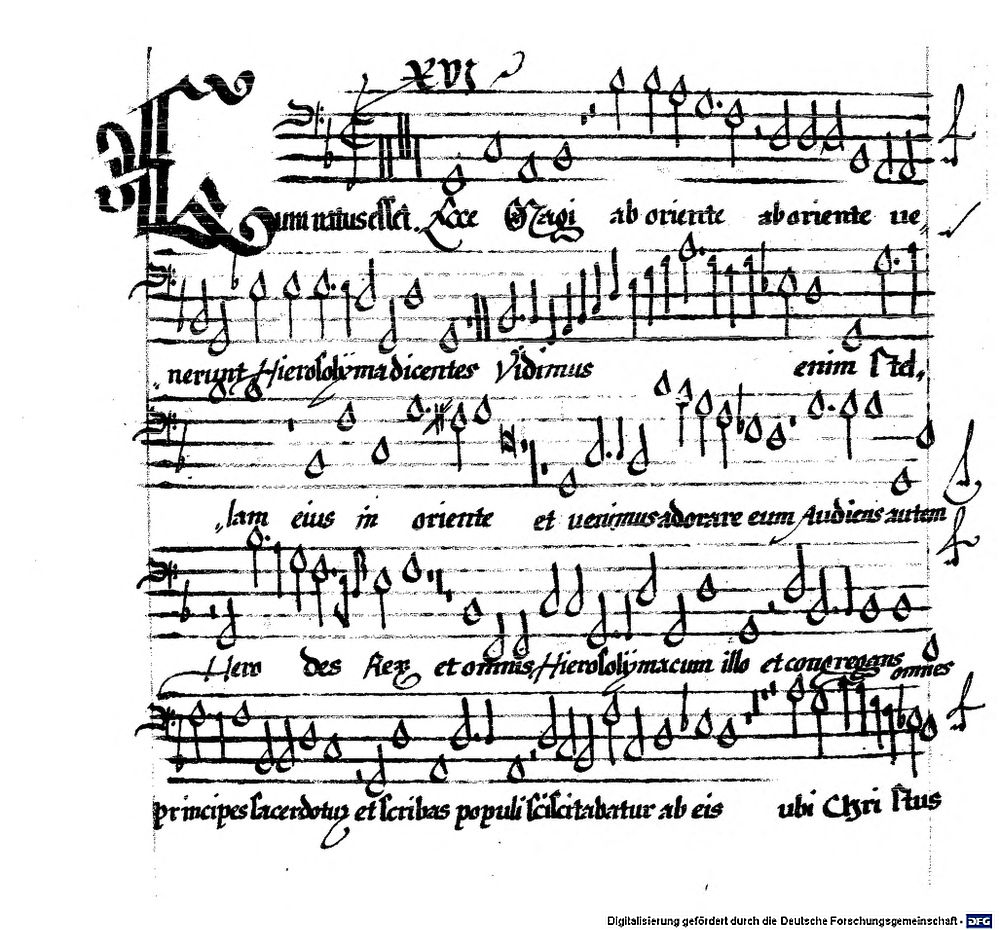 XVI
Cum natus esset. Ecce Magi ab oriente ab oriente ue„
„nerunt Hierosolÿma dicentes Vidimus enim stel„
„lam eius in oriente et uenimus adorare eum Audiens autem
Hero des Rex et omnis Hierosolÿma cum illo et congregans omnes
principes sacerdotuʒ et scribas populi sciscitabatur ab eis ubi Christus
Digitalisierung gefördert durch die Deutsche Forschungsgemeinschaft - DFG